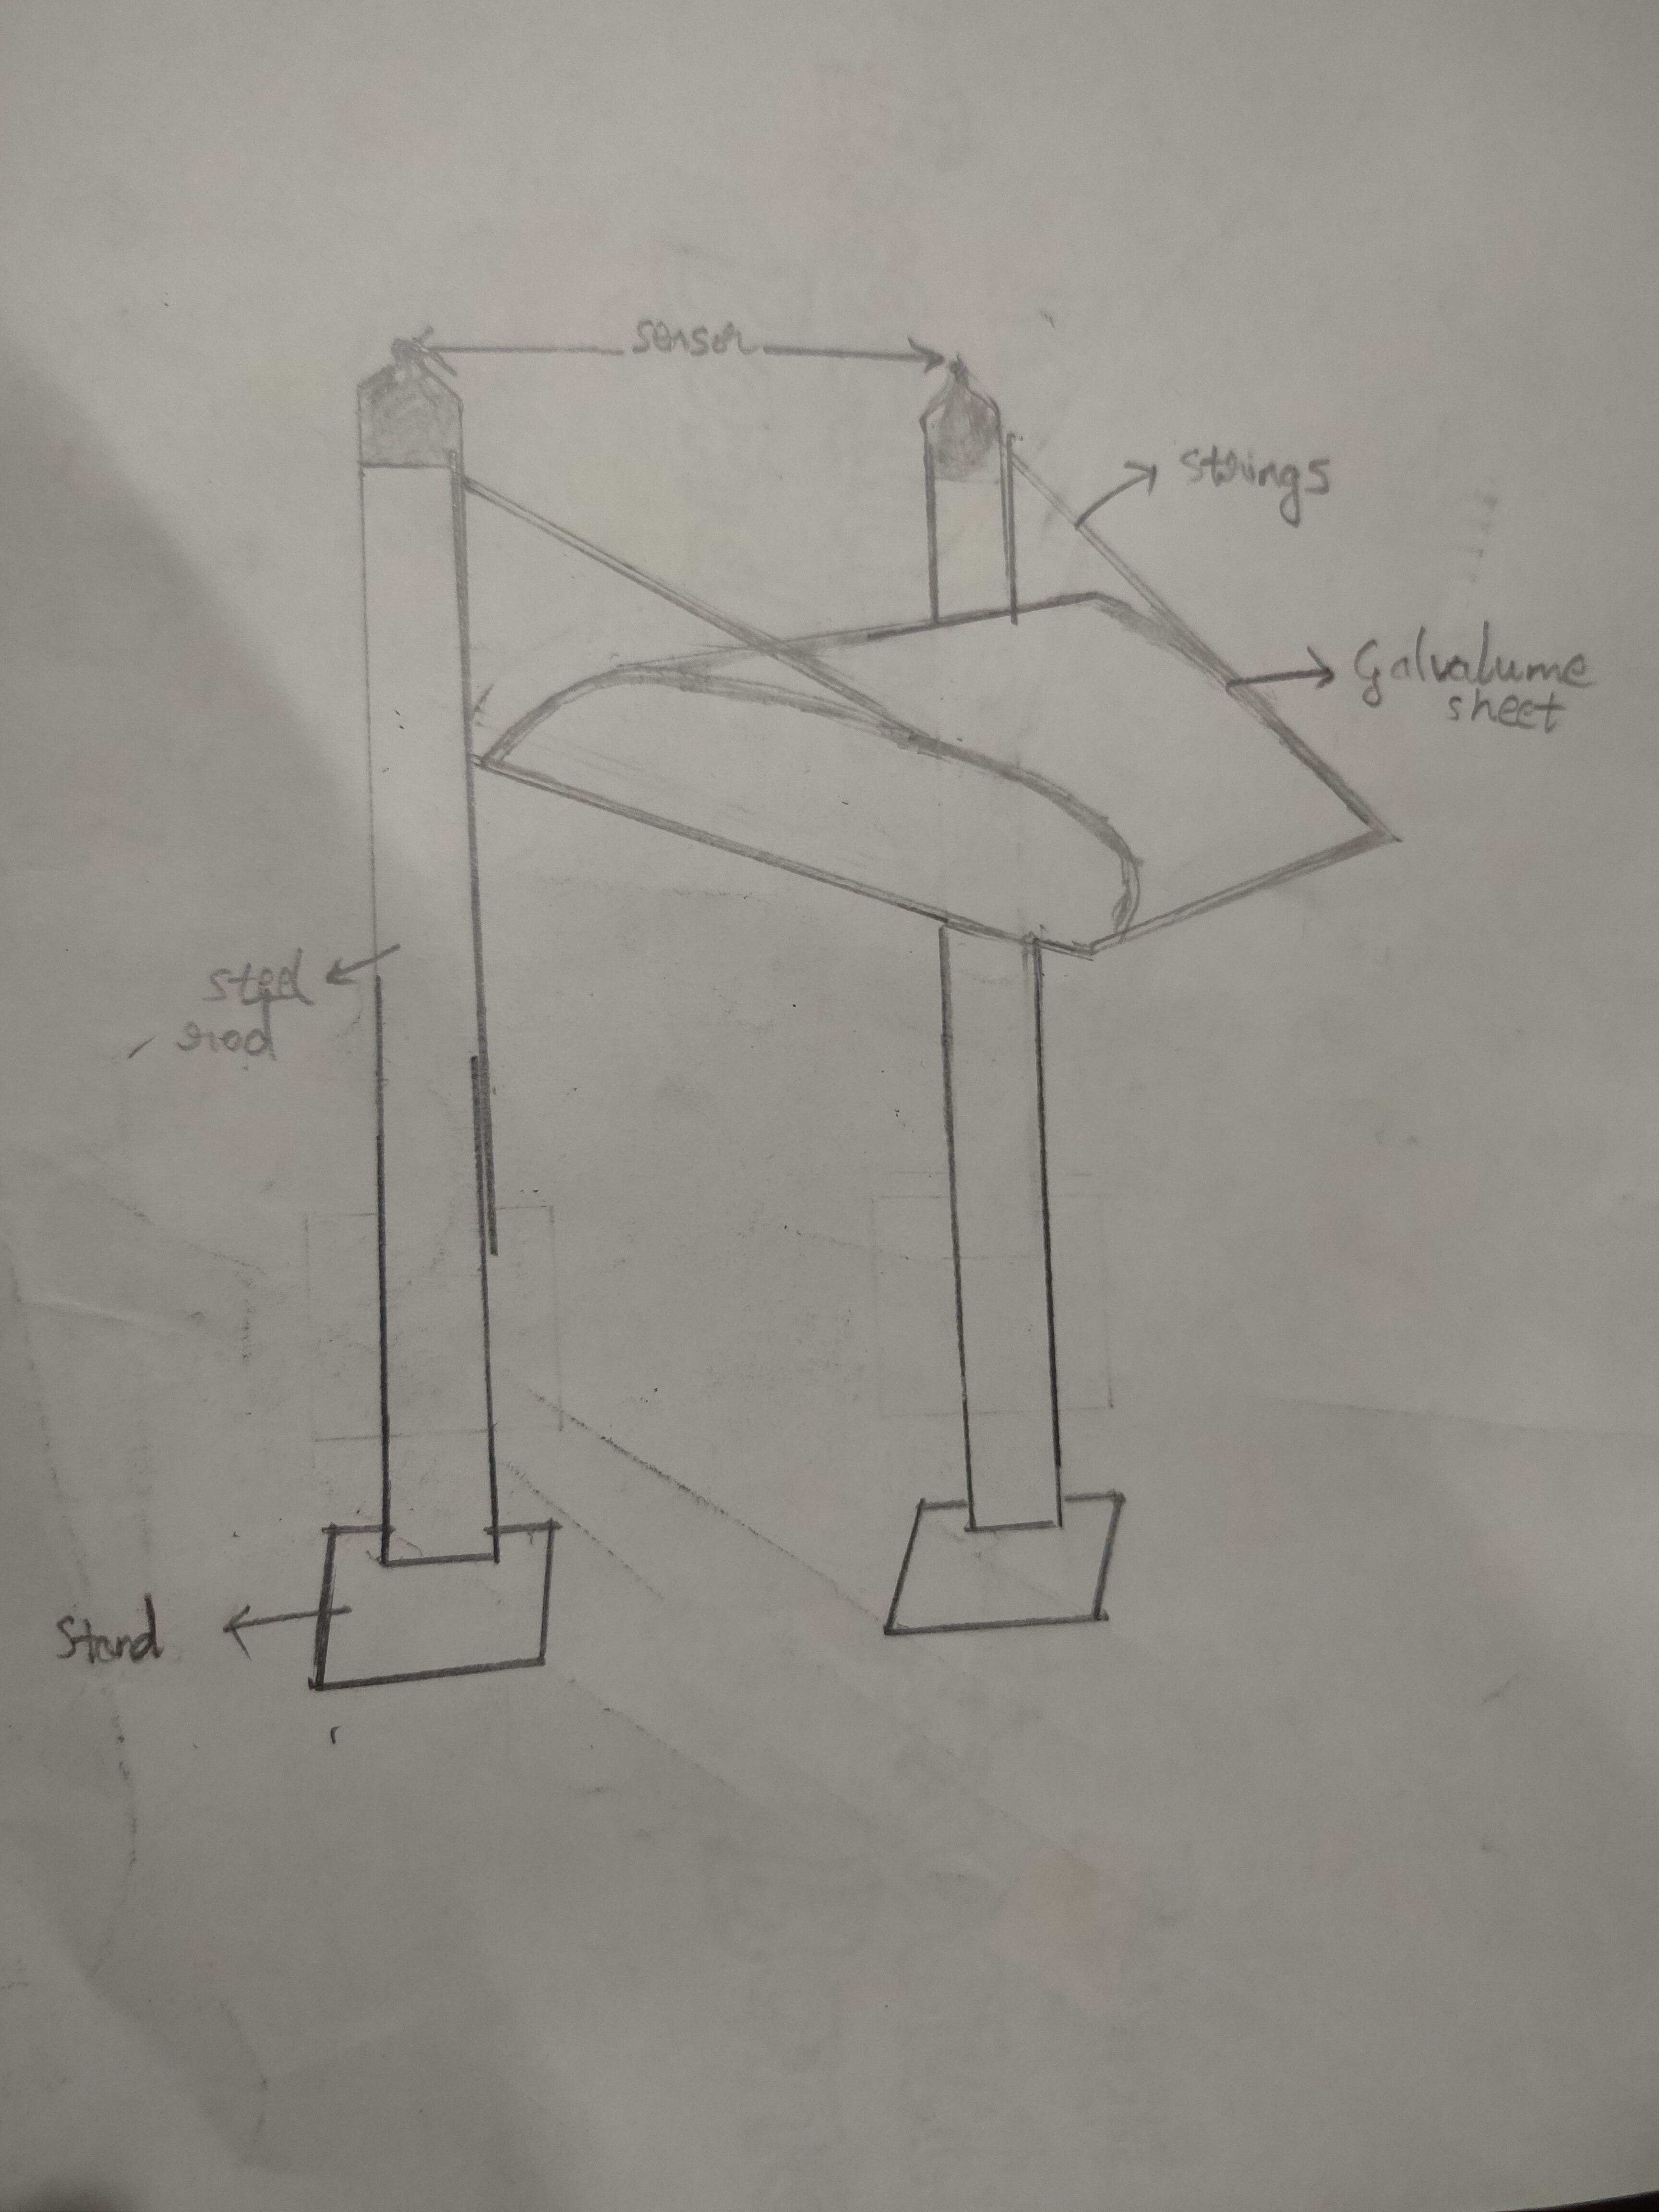 sensor
strings
Galvalume
sheet
steel
rod
Stand